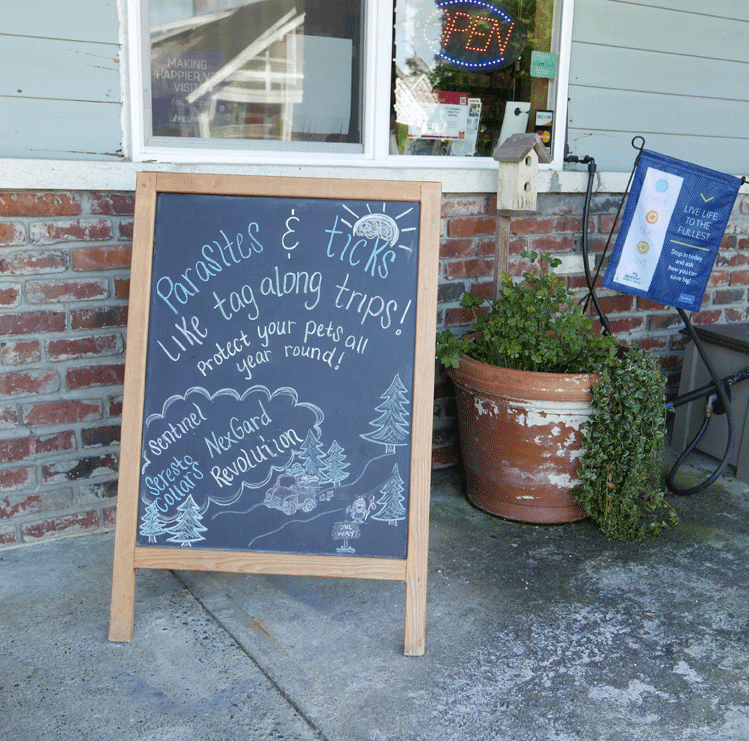 MAKING
HAPPIER
VISITS
OPEN
Parasites & ticks
like tag along trips!
Protect your pets all
year round!
Sentinel
NexGard
Seresto
collars
Revolution
ONE
WAY
LIVE LIFE
TO THE
FULLEST
Stop in today
and ask
how you can
save big!